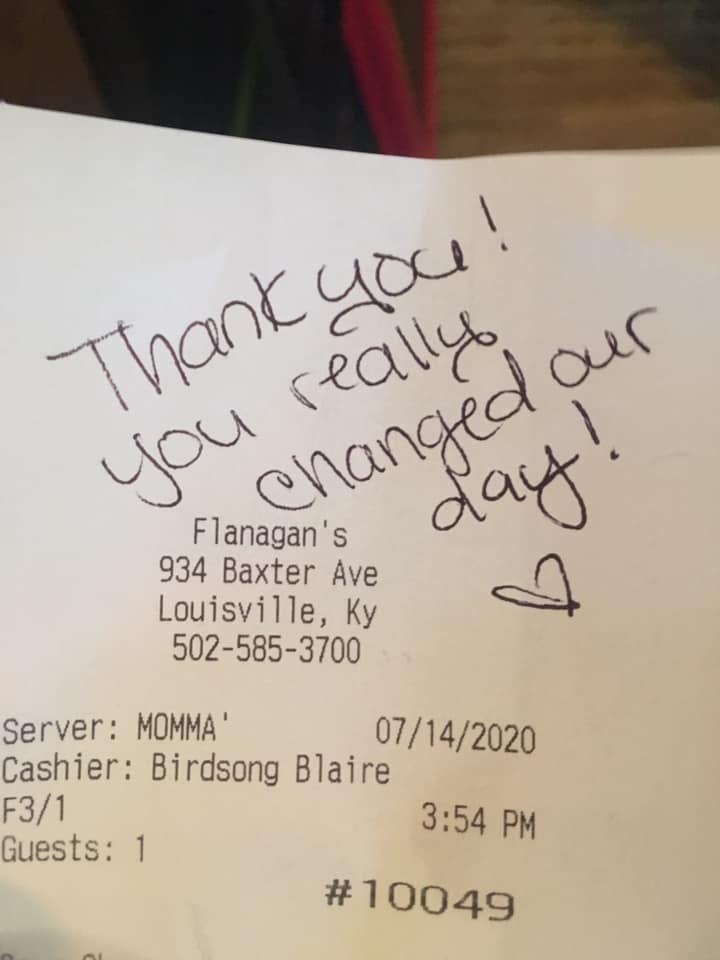 Thank you!
you really
changed our
day!
Flanagan's
934 Baxter Ave
Louisville, Ky
502-585-3700
Server: MOMMA' 07/14/2020
Cashier: Birdsong Blaire
F3/1 3:54 PM
Guests: 1
#10049